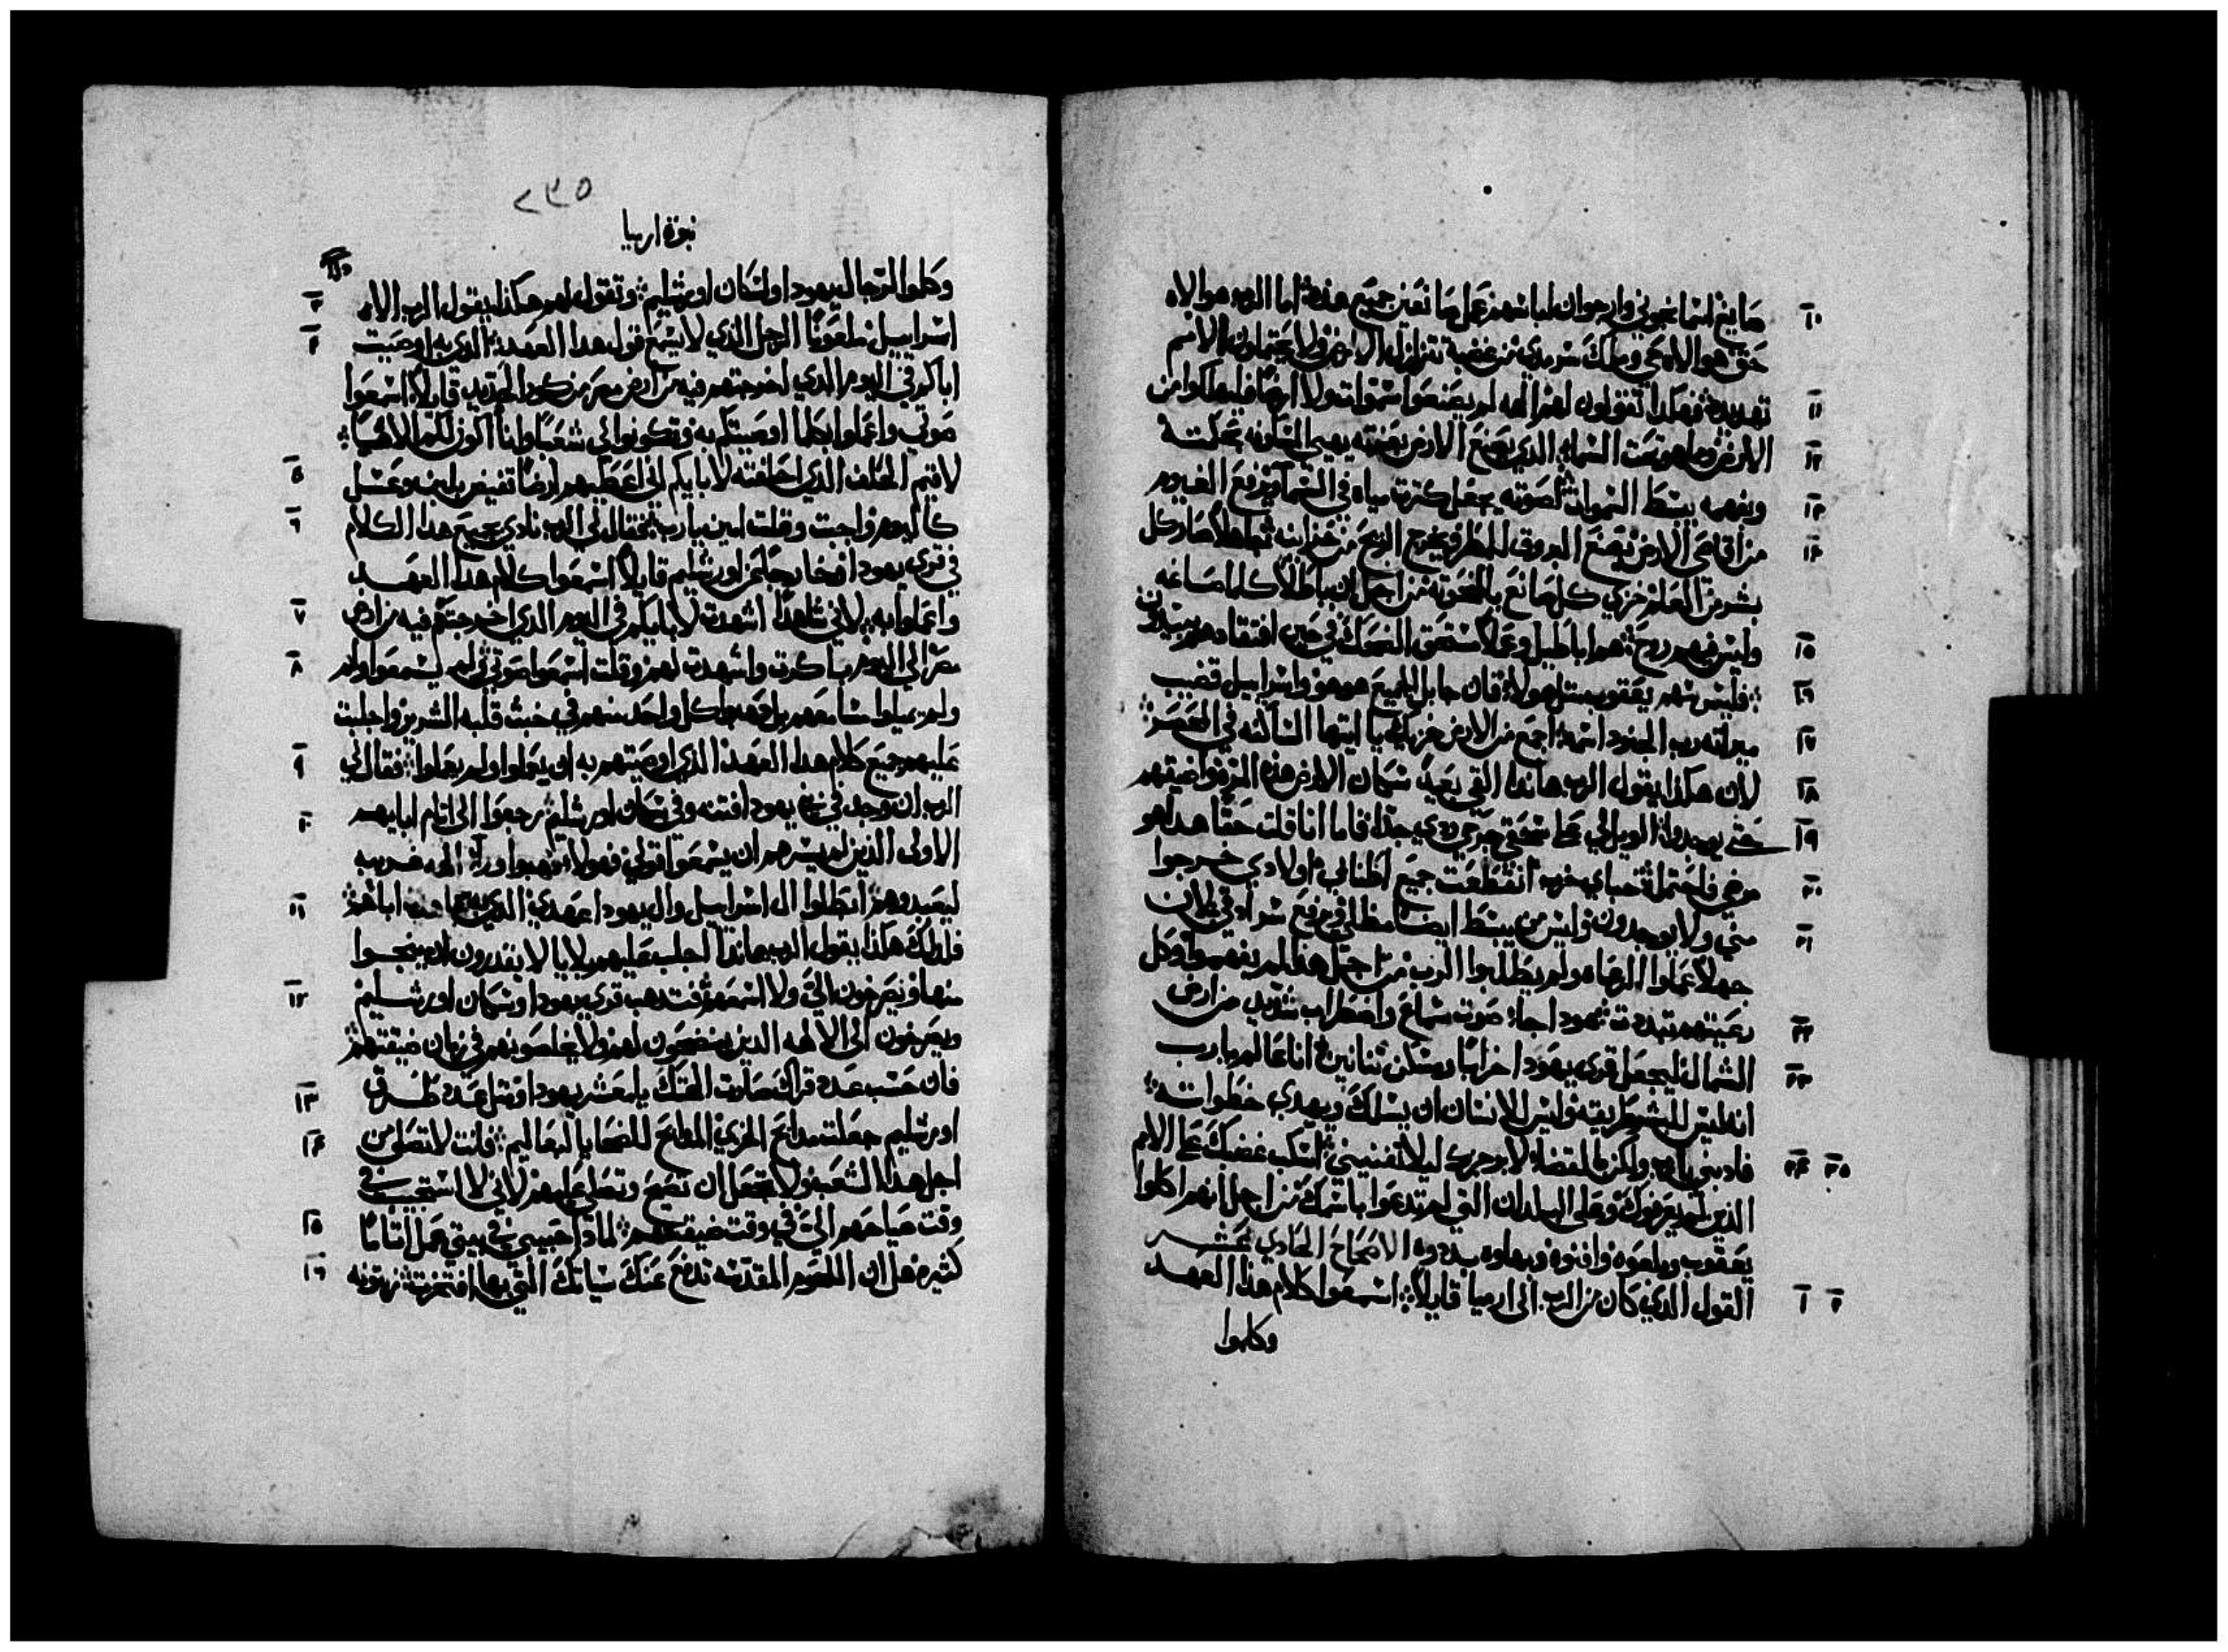 صايغ اسمانجوني وارجوان لباسهم عمل صانعين جميع هذه اما الرب هو الاه
حق هو الاه حي وملك سرمدي من غضبه تتزلزل الارض ولا يحتملون الامم
تهديده فهكذا تقولون لهم الهه لم يصنعوا سموات ولا ارضا فليهلكوا من
الارض ومما هو تحت السماء الذي يصنع الارض بقوته يهيي المسكونه بحكمته
وبفهمه يبسط السموات لصوته يجعل كثرت مياه في السماء ويرفع الغيوم
من اقاصي الارض ويصنع البروق للمطر ويخرج الريح من خزاينه جاهلا صار كل
بشر من العلم خزي كل صانع بالمنحوته من اجل ان باطلا كلما صاغه
وليس فيهم روح هم اباطيل وعملا مستحق الضحك في حين افتقادهم يبيدون
فليس سهم يعقوب مثل هولاء فان جابل الجميع هو هو واسراييل قضيب
ميراثه رب الجنود اسمه اجمع من الارض خزيك يا ايتها الساكنه في الحصر
لان هكذا يقول الرب هانذا القي بعيد سكان الارض هذه المره واضيقهم
حتي يوجدوا الويل لي علي سحقي جرحي ردي جدا فاما انا قلت حقا هذا هو
مرضي فاحتمله خباي خرب انقطعت جميع اطنابي اولادي خرجوا
مني ولا يوجدون وليس من يبسط ايضا مظلتي ويرفع سرادقي لان
جهلا عملوا الرعاه ولم يطلبوا الرب من اجل هذا لم يفهموا وكل
رعيتهم تبددت هوذا جاء صوت سماع واضطراب شديد من ارض
الشمال ليجعل قري يهودا خرابا ومسكن تنانين انا عالم يا رب
انه ليس للبشر طريقه وليس للانسان ان يسلك ويهدي خطواته
فادبني يا رب ولكن بالقضاء لا برجزك ليلا تفنيني اسكب غضبك علي الامم
الذين لم يعرفوك وعلي البلدان التي لم تدعوا باسمك من اجل انهم اكلوا
يعقوب وبلعوه وافنوه وبهاوه بددوه الاصحاح الحادي عشر
القول الذي كان من الرب الى ارميا قايلا اسمعوا كلام هذا العهد
وكلموا
٢٣٥
نبوة ارميا
وكلموا الرجال يهودا وسكان اورشليم وتقول لهم هكذا يقول الرب الاه
اسراييل ملعونا الرجل الذي لا يسمع قول هذا العهد الذي به اوصيت
اباكم في اليوم الذي اخرجتهم فيه من ارض مصر من كور الحديد قايلا اسمعوا
صوتي واعملوا بكلما اوصيتكم به وتكونوا لي شعبا وانا اكون لكم الاها
لاقيم الحلف الذي احلفته لابايكم اني اعطيهم ارضا تفيض بلبن وعسل
كاليوم واجبت وقلت امين يا رب فقال لي الرب نادي بجميع هذا الكلام
في قري يهودا وخارجا عن اورشليم قايلا اسمعوا كلام هذا العهد
واعملوا به لاني شاهدا اشهدت لابايكم في اليوم الذي اخرجتهم فيه من ارض
مصر الي اليوم باكرت واشهدت لهم وقلت اسمعوا صوتي فلم يسمعوا ولم
ولم يميلوا مسامعهم بل ذهبوا كل واحد منهم في خبث قلبه الشرير واجلبت
عليهم جميع كلام هذا العهد الذي اوصيتهم به ان يعملوا ولم يعملوا فقال لي
الرب ان وجد في رجال يهودا فتنه وفي سكان اورشليم رجعوا الي اثام ابايهم
الاولى الذين لم يسرهم ان يسمعوا قولي فهولا ذهبوا وراء الهه غريبه
ليعبدوهم ابطلوا ال اسراييل وال يهودا عهدي الذي عاهدت اباهم
فلذلك هكذا يقول الرب هانذا اجلب عليهم بلايا لا يقدرون ان ينجوا
منها ويصرخون الي ولا اسمعهم فتذهب قري يهودا وسكان اورشليم
ويصرخون الي الالهه الذين يضحون لهم ولا يخلصونهم في زمان ضيقتهم
فان حسب عدد قراك صارت الهتك يا معشر يهودا ومثل عدد طرق
اورشليم جعلت مدابح الخزي المدابح للضحايا لبعاليم فانت لا تصلي من
اجل هذا الشعب ولا تجعل ان تصنع وتصلي عليهم لاني لا استجيب في
وقت صياحهم الي في وقت ضيقتهم لماذا حبيبي في بيتي عمل اثاما
كثيره هل ان اللحوم المقدسه تدفع عنك سياتك التي بها افتخرت زيتونه